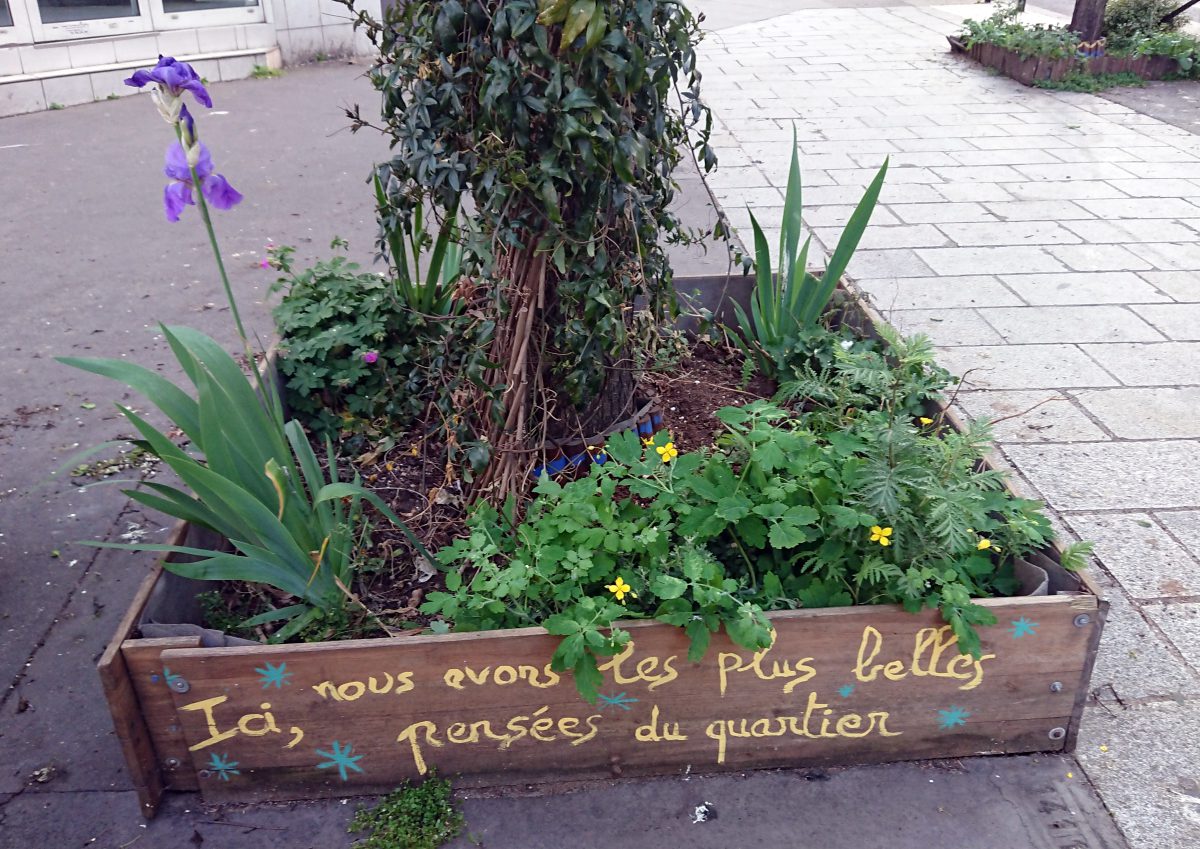 Ici, nous avons les plus belles
pensées du quartier